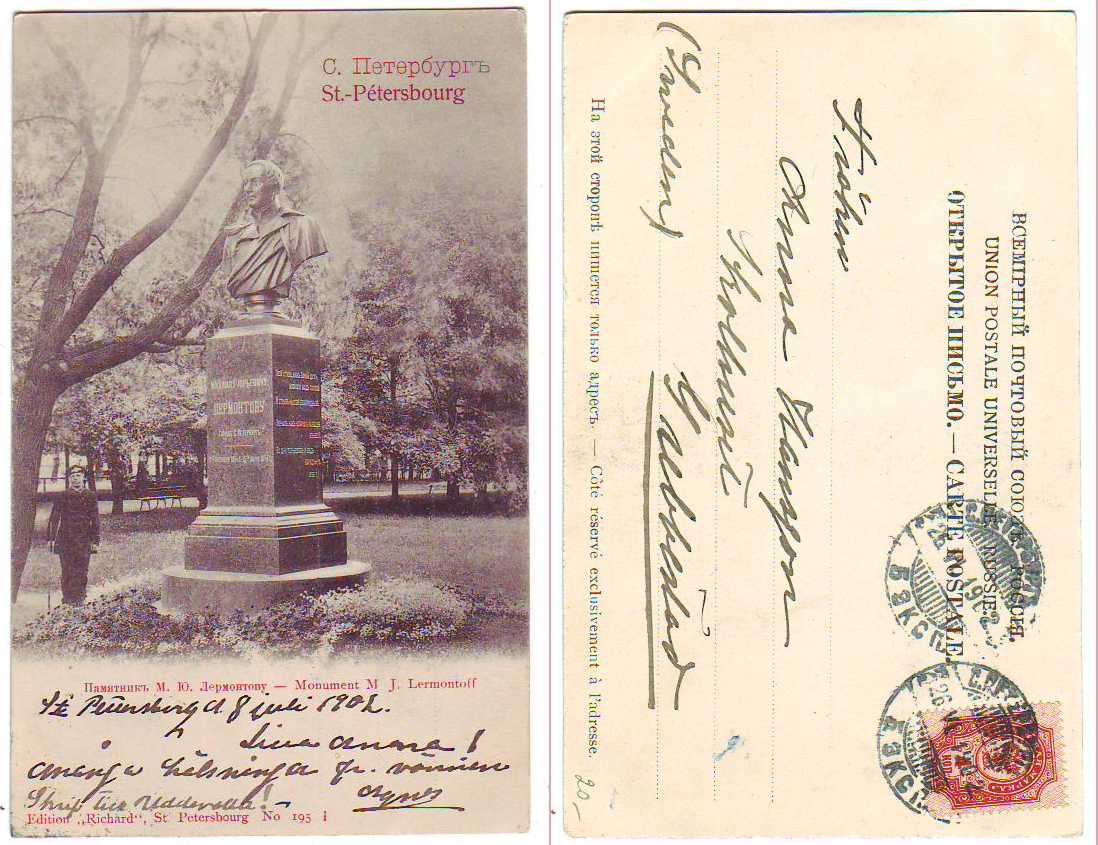 С. Петербургъ
St.-Pétersbourg
ЛЕРМОНТОВУ
Памятникъ М. Ю. Лермонтову — Monument M J. Lermontoff
St Petersburg d 8 juli 1902.
Lina Anna!
Många hälsninga fr. vännen
Agnes
Skrif till Uddevalla! —
Edition „Richard“, St Petersbourg No 195
ВСЕМІРНЫЙ ПОЧТОВЫЙ СОЮЗЪ РОССІЯ.
UNION POSTALE UNIVERSELLE RUSSIE.
ОТКРЫТОЕ ПИСЬМО. — CARTE POSTALE.
Fröken
Anna Hansson
Grebbestad
(Sweden)
На этой сторонѣ пишется только адресъ. — Côté réservé exclusivement à l'adresse.
20-